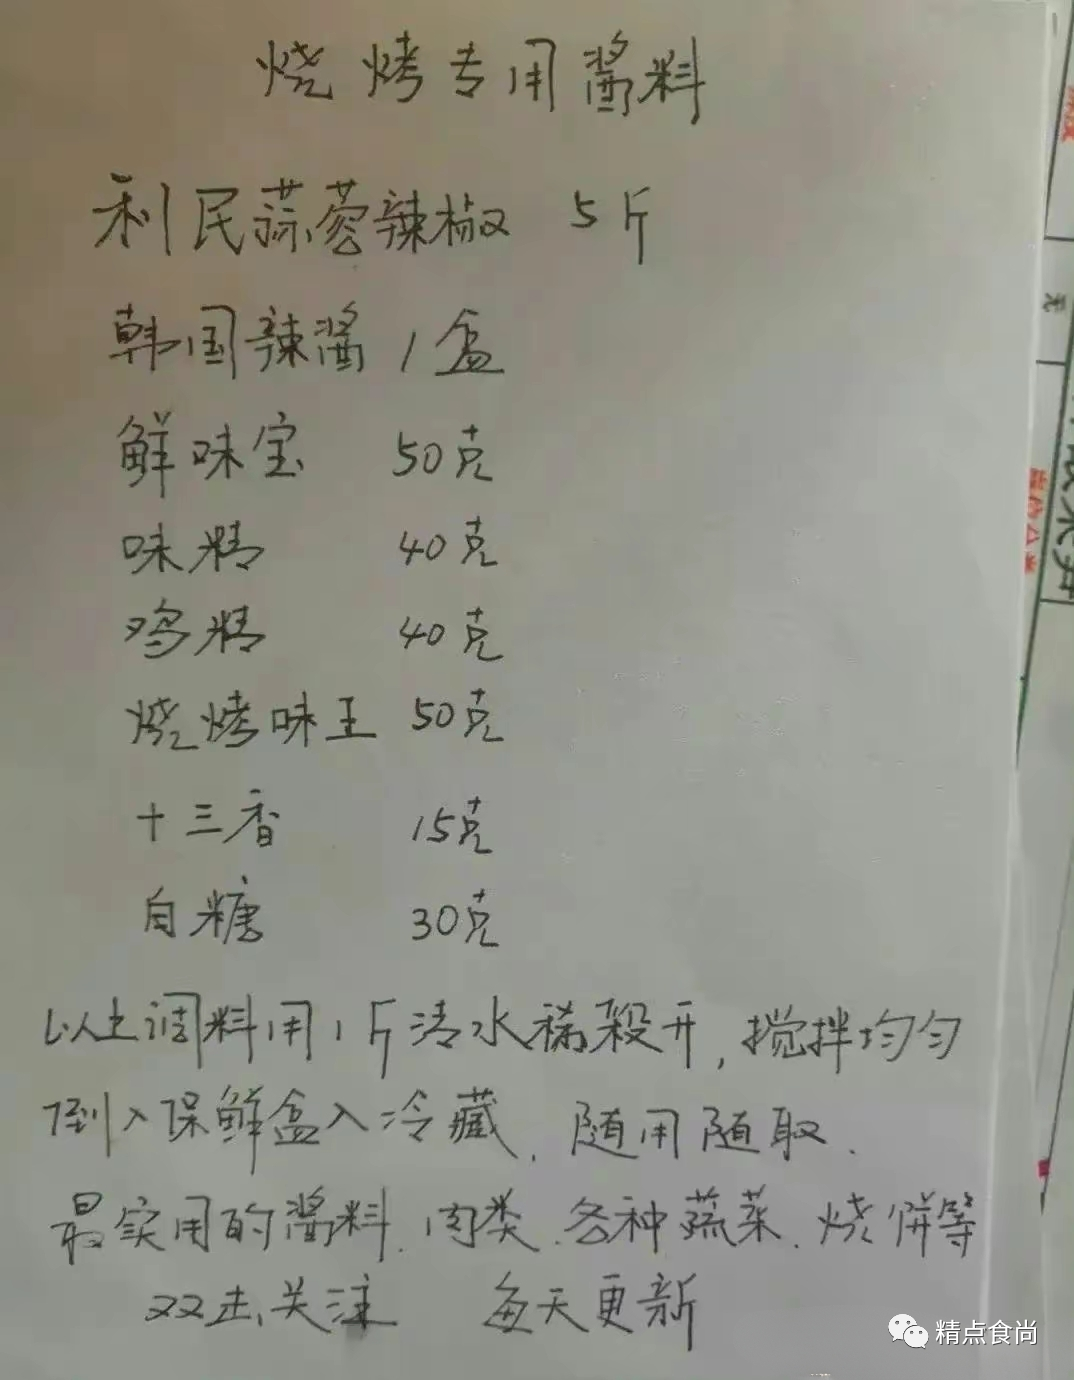 烧烤专用酱料
利民蒜蓉辣椒 5斤
韩国辣酱 1盒
鲜味宝 50克
味精 40克
鸡精 40克
烧烤味王 50克
十三香 15克
白糖 30克
以上调料用1斤清水稀释开,搅拌均匀
倒入保鲜盒入冷藏,随用随取.
最实用的酱料.肉类.各种蔬菜.烧饼等
双击关注 每天更新
精点食尚